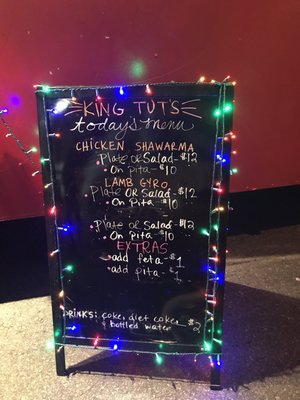 KING TUT'S
today's menu
CHICKEN SHAWARMA
• Plate OR Salad - $12
• On Pita - $10
LAMB GYRO
• Plate OR Salad - $12
• On Pita - $10
• Plate OR Salad - $12
• On Pita - $10
EXTRAS
• add feta - $1
• add pita - $1
DRINKS: coke, diet coke, $2
& bottled water